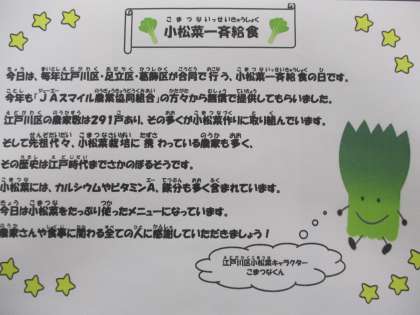 こまつないっせいきゅうしょく
小松菜一斉給食
今日は、毎年江戸川区・足立区・葛飾区が合同で行う、小松菜一斉給食の日です。
今年も「JAスマイル農業協同組合」の方々から無償で提供してもらいました。
江戸川区の農家数は291戸あり、その多くが小松菜作りに取り組んでいます。
そして先祖代々、小松菜栽培に携わっている農家も多く、
その歴史は江戸時代までさかのぼるそうです。
小松菜には、カルシウムやビタミンA、鉄分も多く含まれています。
今日は小松菜をたっぷり使ったメニューになっています。
農家さんや食事に関わる全ての人に感謝していただきましょう！
江戸川区小松菜キャラクター
こまつなくん